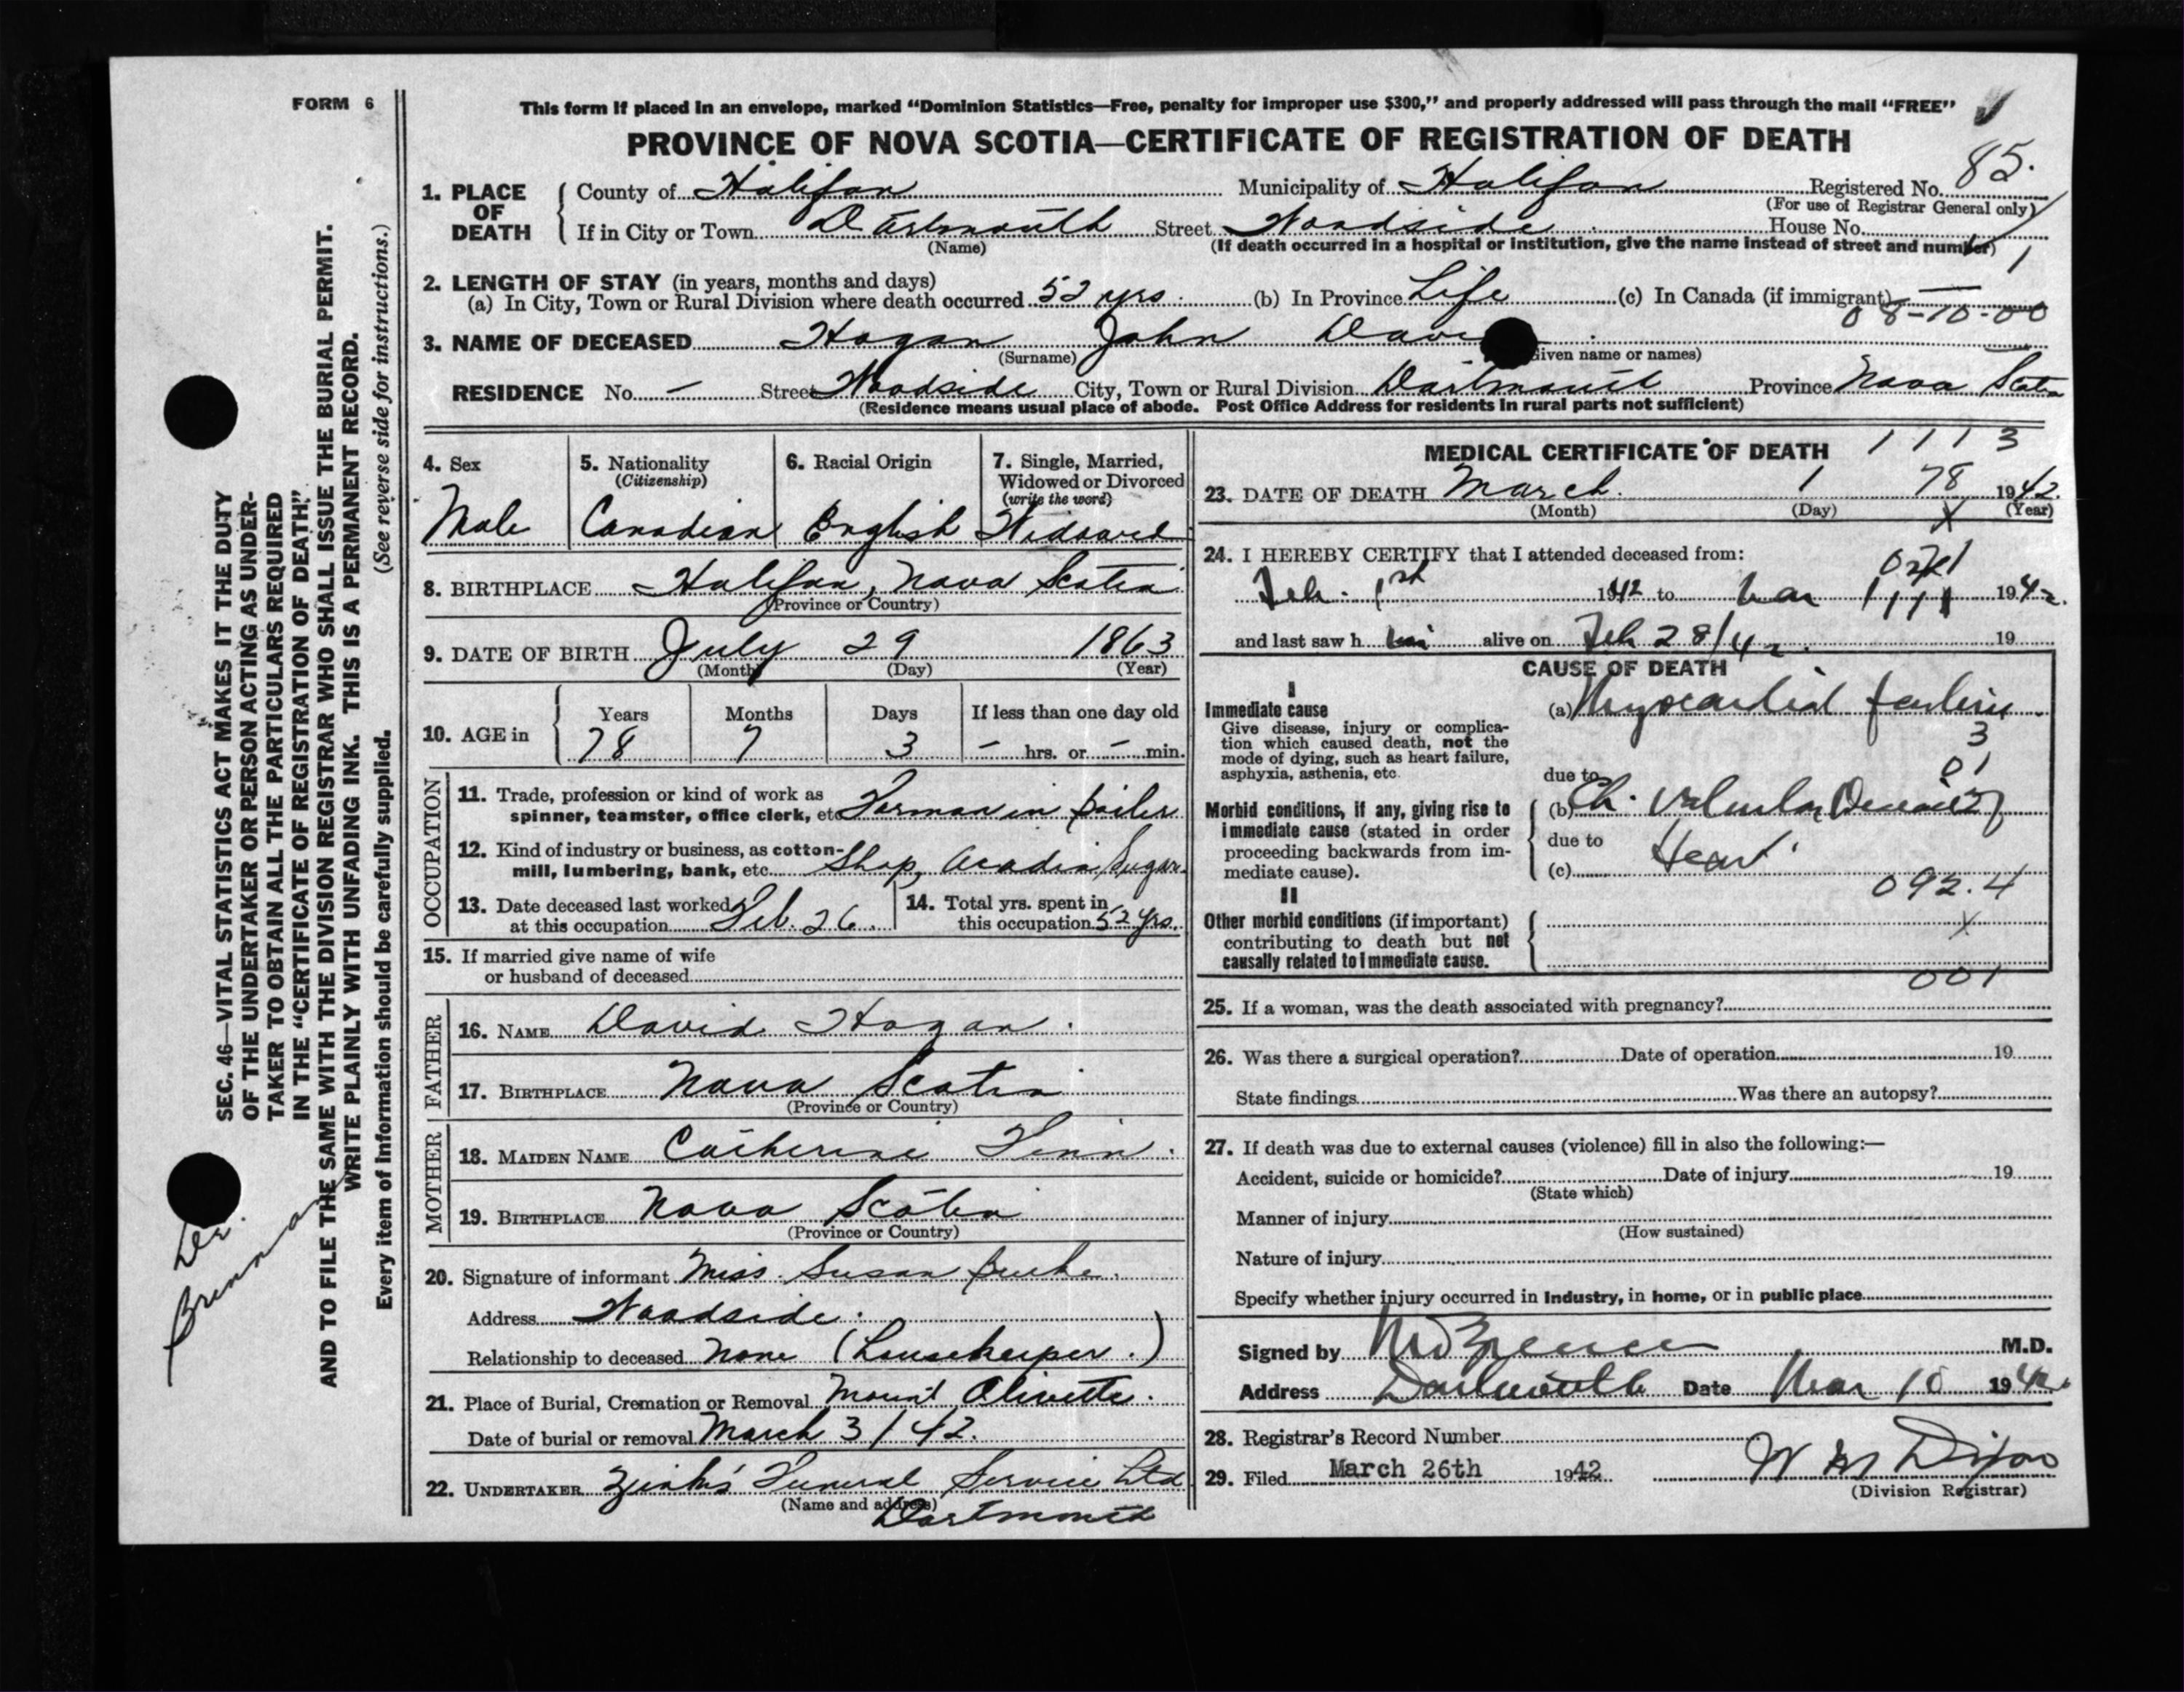 FORM 6
This form if placed in an envelope, marked “Dominion Statistics—Free, penalty for improper use $300,” and properly addressed will pass through the mail “FREE”
PROVINCE OF NOVA SCOTIA—CERTIFICATE OF REGISTRATION OF DEATH
85.
1. PLACE OF DEATH
County of Halifax Municipality of Halifax Registered No.
(For use of Registrar General only)
If in City or Town Dartmouth Street Woodside House No.
(Name) (If death occurred in a hospital or institution, give the name instead of street and number)
1
2. LENGTH OF STAY (in years, months and days)
(a) In City, Town or Rural Division where death occurred 52 yrs. (b) In Province Life (c) In Canada (if immigrant) —
08-10-00
3. NAME OF DECEASED Hogan John Davi
(Surname) Given name or names)
RESIDENCE No. — Street Woodside City, Town or Rural Division Dartmouth Province Nova Scotia
(Residence means usual place of abode. Post Office Address for residents in rural parts not sufficient)
4. Sex
Male
5. Nationality
(Citizenship)
Canadian
6. Racial Origin
English
7. Single, Married,
Widowed or Divorced
(write the word)
Widowed
8. BIRTHPLACE Halifax, Nova Scotia
(Province or Country)
9. DATE OF BIRTH July 29 1863
(Month) (Day) (Year)
10. AGE in
Years Months Days If less than one day old
78 7 3 — hrs. or — min.
OCCUPATION
11. Trade, profession or kind of work as
spinner, teamster, office clerk, etc. Forman in boiler
12. Kind of industry or business, as cotton-
mill, lumbering, bank, etc. Shop, Acadia Sugar
13. Date deceased last worked
at this occupation Feb. 26.
14. Total yrs. spent in
this occupation 52 yrs.
15. If married give name of wife
or husband of deceased
FATHER
16. NAME David Hogan.
17. BIRTHPLACE Nova Scotia
(Province or Country)
MOTHER
18. MAIDEN NAME Catherine Finn.
19. BIRTHPLACE Nova Scotia
(Province or Country)
20. Signature of informant Miss. Susan Burke.
Address Woodside.
Relationship to deceased None (Housekeeper.)
21. Place of Burial, Cremation or Removal Mount Olivette.
Date of burial or removal March 3/42.
22. UNDERTAKER Zink's Funeral Service Ltd
(Name and address)
Dartmouth
MEDICAL CERTIFICATE OF DEATH
1 1 1 3
23. DATE OF DEATH March. 1 78 1942.
(Month) (Day) (Year)
X
24. I HEREBY CERTIFY that I attended deceased from:
Feb. 1st 1942 to Mar 1 1942.
and last saw h im alive on Feb 28/42. 19
CAUSE OF DEATH
I
Immediate cause
Give disease, injury or complica-
tion which caused death, not the
mode of dying, such as heart failure,
asphyxia, asthenia, etc.
(a) Myocardial failure.
3
01
due to
Morbid conditions, if any, giving rise to
immediate cause (stated in order
proceeding backwards from im-
mediate cause).
(b) Ch. Valvular Disease of
due to Heart.
(c)
092.4
II
Other morbid conditions (if important)
contributing to death but not
causally related to immediate cause.
X
001
25. If a woman, was the death associated with pregnancy?
26. Was there a surgical operation? Date of operation 19
State findings Was there an autopsy?
27. If death was due to external causes (violence) fill in also the following:—
Accident, suicide or homicide? Date of injury 19
(State which)
Manner of injury
(How sustained)
Nature of injury
Specify whether injury occurred in Industry, in home, or in public place
Signed by M.D.
Address Dartmouth Date Mar 10 1942.
28. Registrar's Record Number
29. Filed March 26th 1942 W M Dixon
(Division Registrar)
SEC. 46—VITAL STATISTICS ACT MAKES IT THE DUTY
OF THE UNDERTAKER OR PERSON ACTING AS UNDER-
TAKER TO OBTAIN ALL THE PARTICULARS REQUIRED
IN THE “CERTIFICATE OF REGISTRATION OF DEATH,”
AND TO FILE THE SAME WITH THE DIVISION REGISTRAR WHO SHALL ISSUE THE BURIAL PERMIT.
WRITE PLAINLY WITH UNFADING INK. THIS IS A PERMANENT RECORD.
(See reverse side for instructions.)
Every item of Information should be carefully supplied.
Brennan